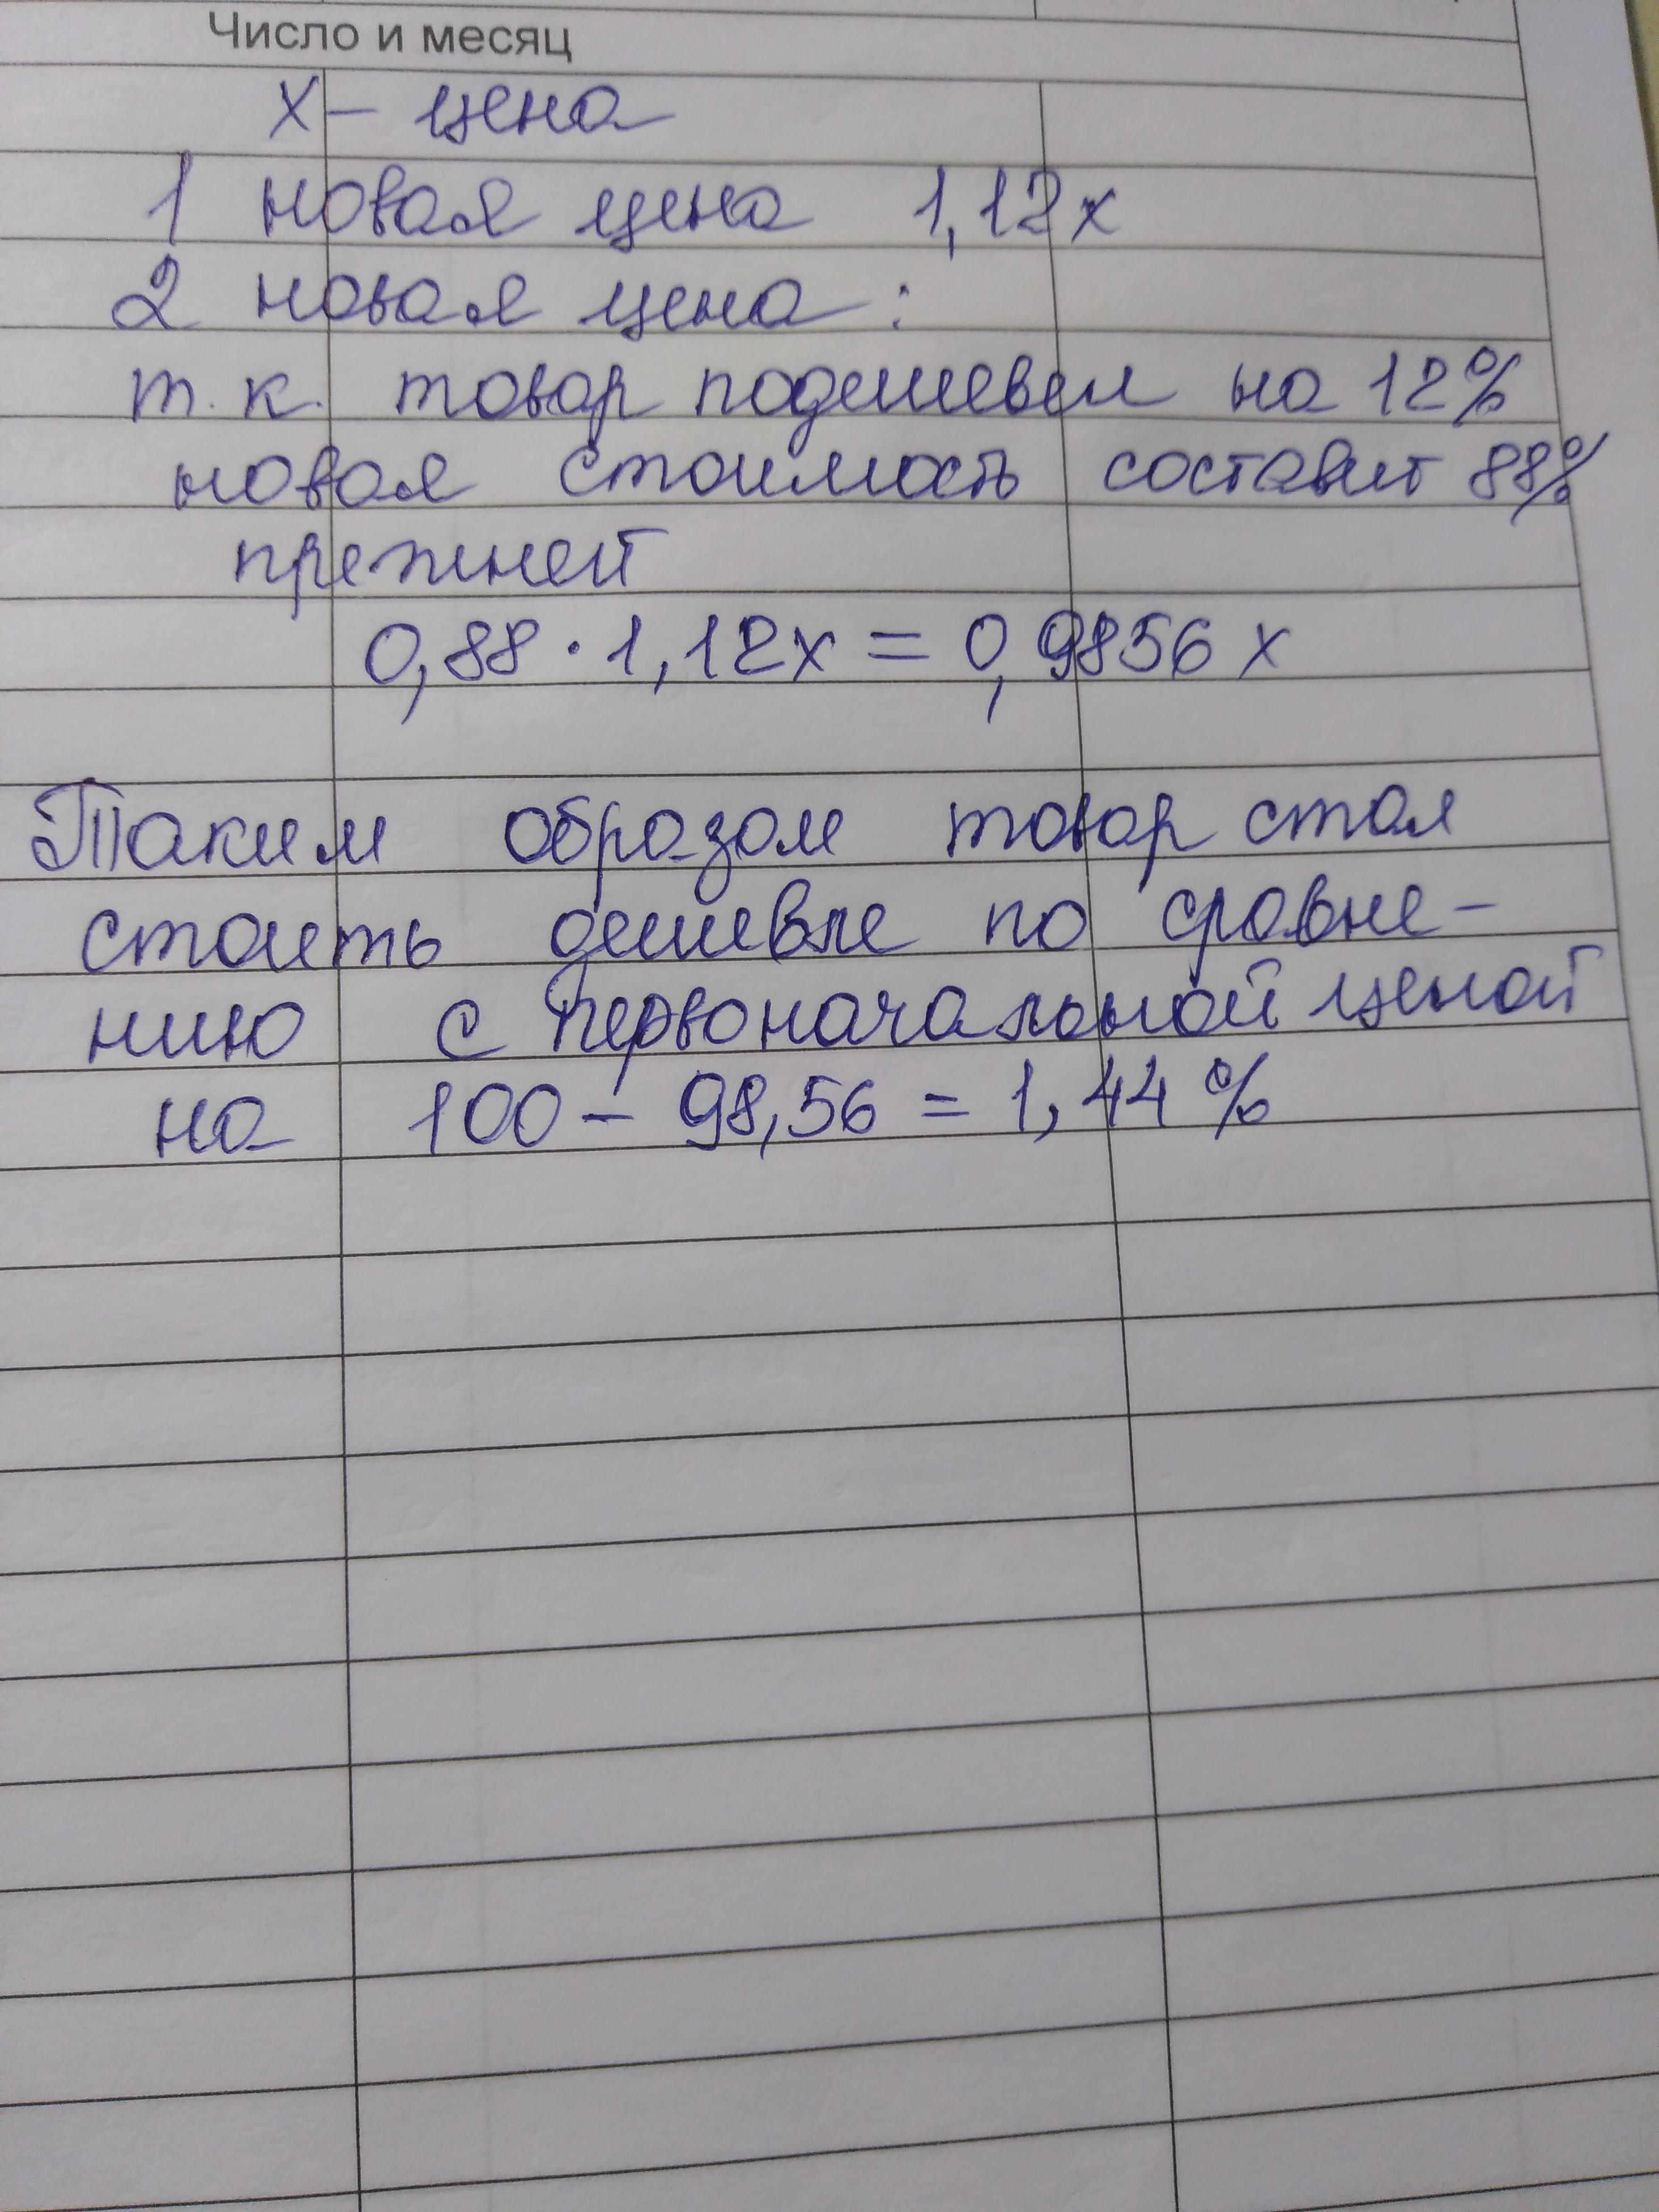 Число и месяц
х – цена
1 новая цена 1,12х
2 новая цена :
т. к. товар подешевел на 12%
новая стоимость составит 88%
прежней
0,88 · 1,12х = 0,9856 х
Таким образом товар стал
стоить дешевле по сравне-
нию с первоначальной ценой
на 100 – 98,56 = 1,44 %